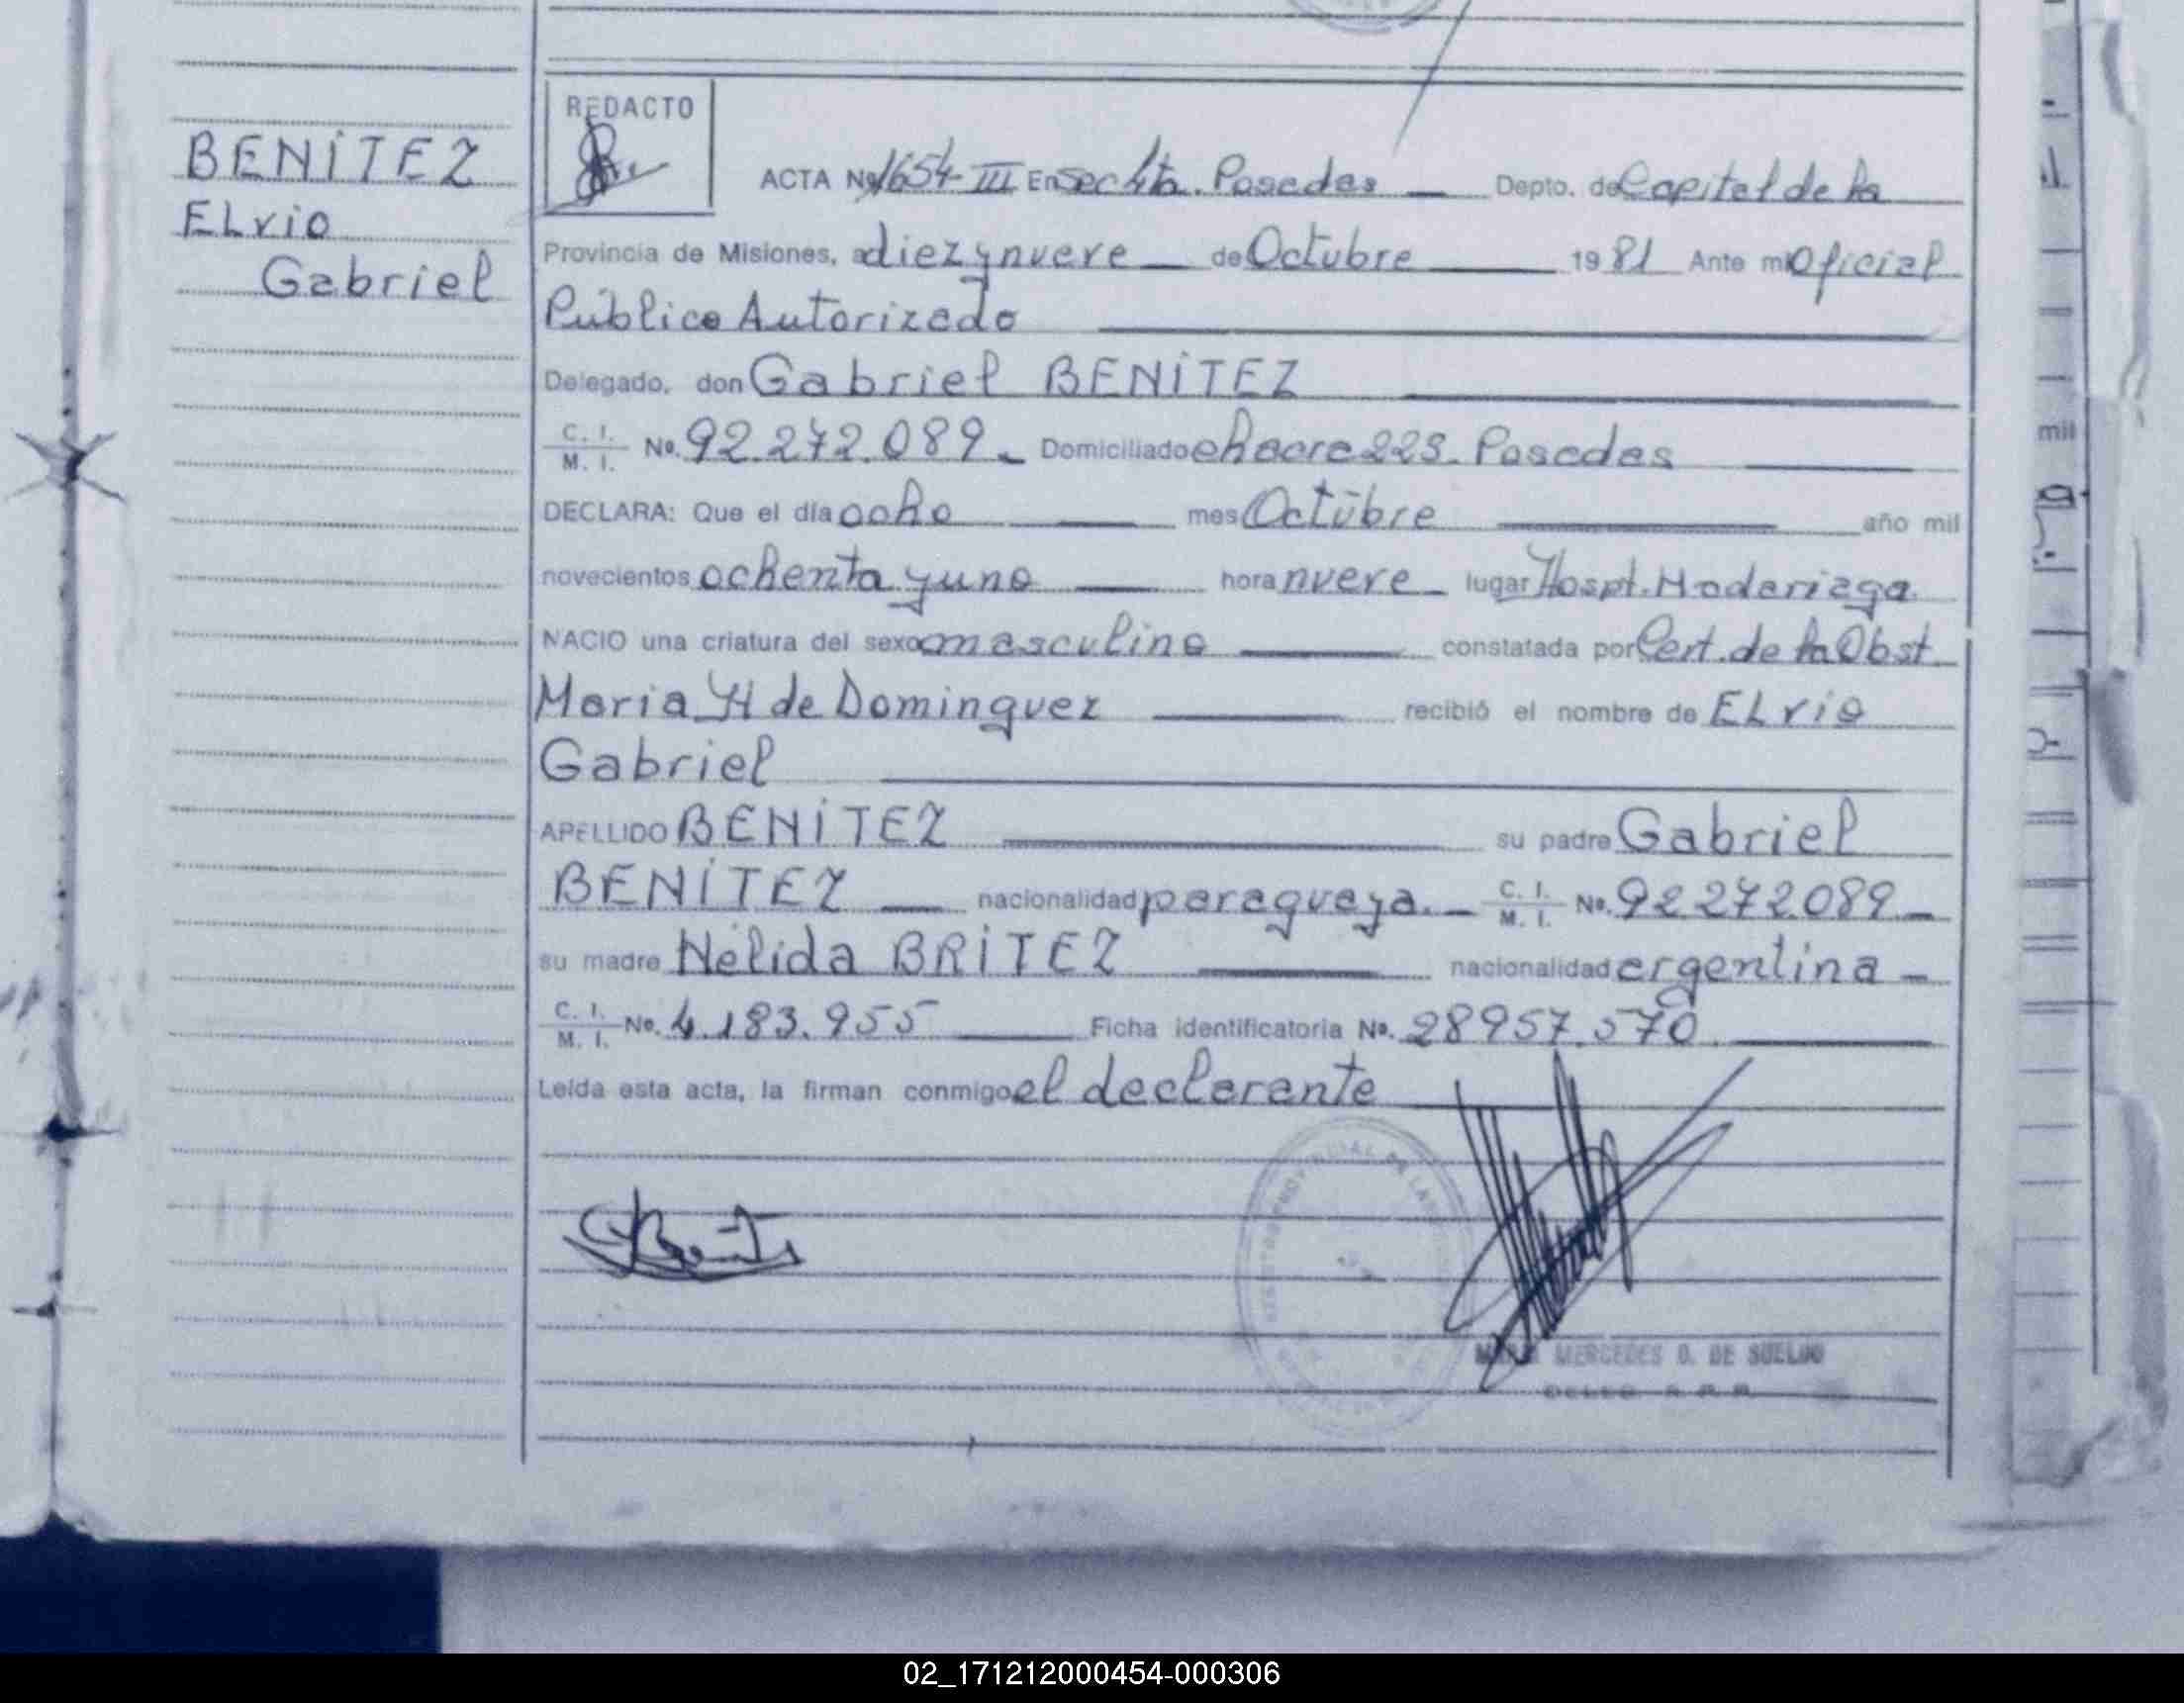 BENÍTEZ
ELvio
Gabriel
REDACTO
ACTA Nº 1654-III En Sec 4ta. Posadas Depto. de Capital de la
Provincia de Misiones, a diez y nueve de Octubre 1981 Ante mi Oficial
Público Autorizado
Delegado, don Gabriel BENÍTEZ
C. I. M. I. No. 92.272.089 Domiciliado chacra 223. Posadas
DECLARA: Que el día ocho mes Octubre año mil
novecientos ochenta y uno hora nueve lugar Hospt. Madariaga.
NACIO una criatura del sexo masculino constatada por Cert. de la Obst
Maria H de Dominguez recibió el nombre de ELvio
Gabriel
APELLIDO BENÍTEZ su padre Gabriel
BENÍTEZ nacionalidad paraguaya. C. I. M. I. No. 92272089
su madre Nélida BRÍTEZ nacionalidad argentina
C. I. M. I. No. 4.183.955 Ficha identificatoria No. 28957.570
Leída esta acta, la firman conmigo el declarante
MERCEDES O. DE SUELDO
mil
02_171212000454-000306